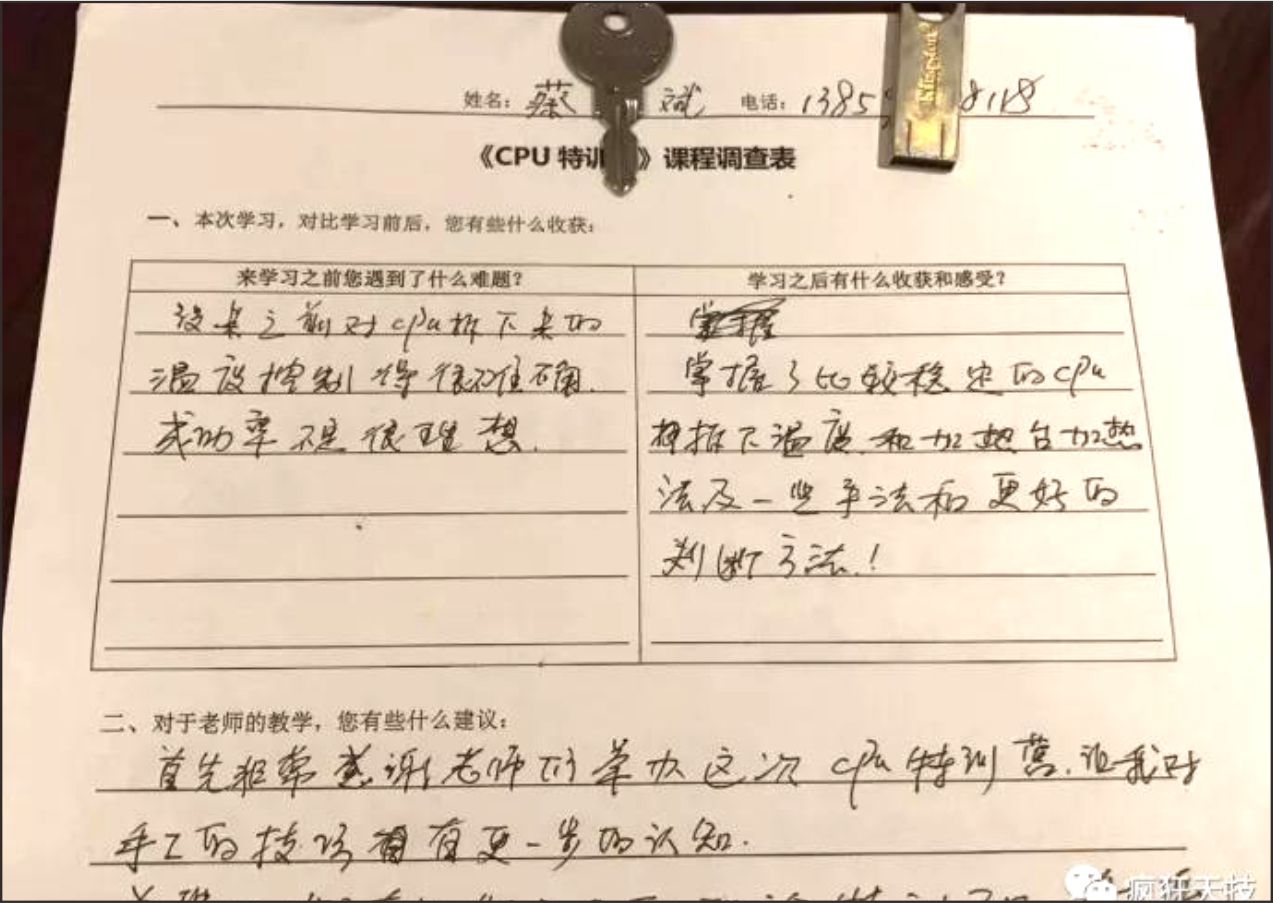 姓名：蔡 斌 电话：1385 8118
Kingston
《CPU 特训 》课程调查表
一、本次学习，对比学习前后，您有些什么收获：
来学习之前您遇到了什么难题？
没来之前对cpu拆下来的
温度控制得很不准确.
成功率不是很理想.
学习之后有什么收获和感受？
掌握
掌握了比较稳定的cpu
拆下温度.和加热台加热
法及一些手法和更好的
判断方法！
二、对于老师的教学，您有些什么建议：
首先非常感谢老师的举办这次cpu特训营.让我对
手工的技巧有更一步的认知.
疯狂天技